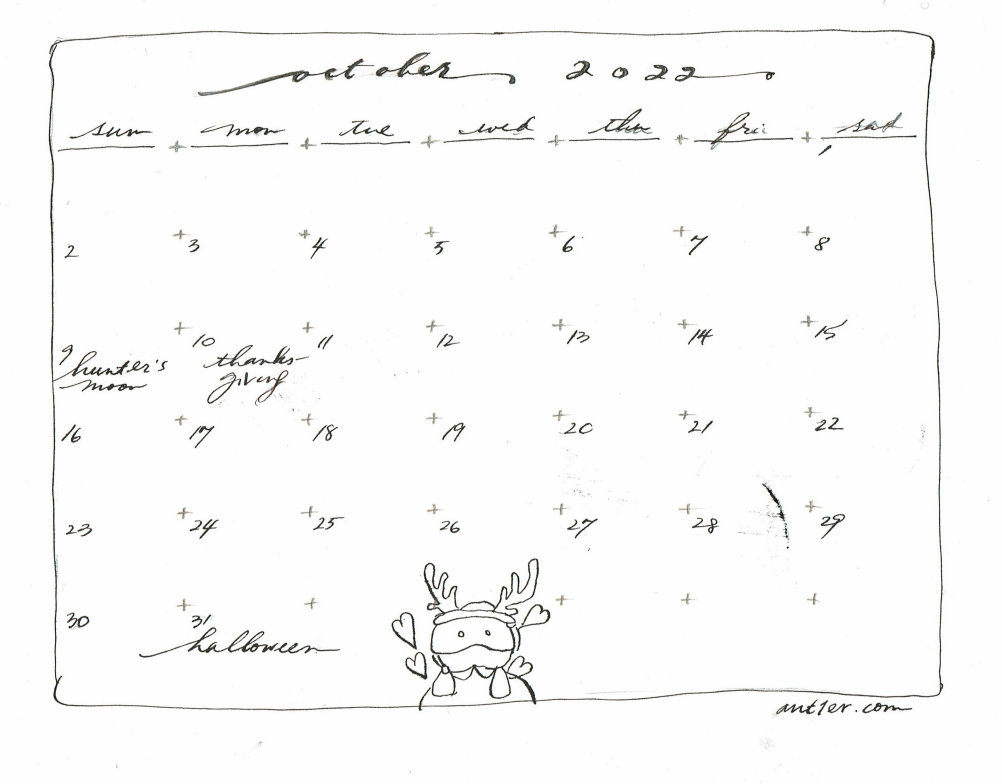 october 2022
sun mon tue wed thu fri sat
1
2 3 4 5 6 7 8
9 10 11 12 13 14 15
hunter's thanks-
moon giving
16 17 18 19 20 21 22
23 24 25 26 27 28 29
30 31
halloween
ant1er.com